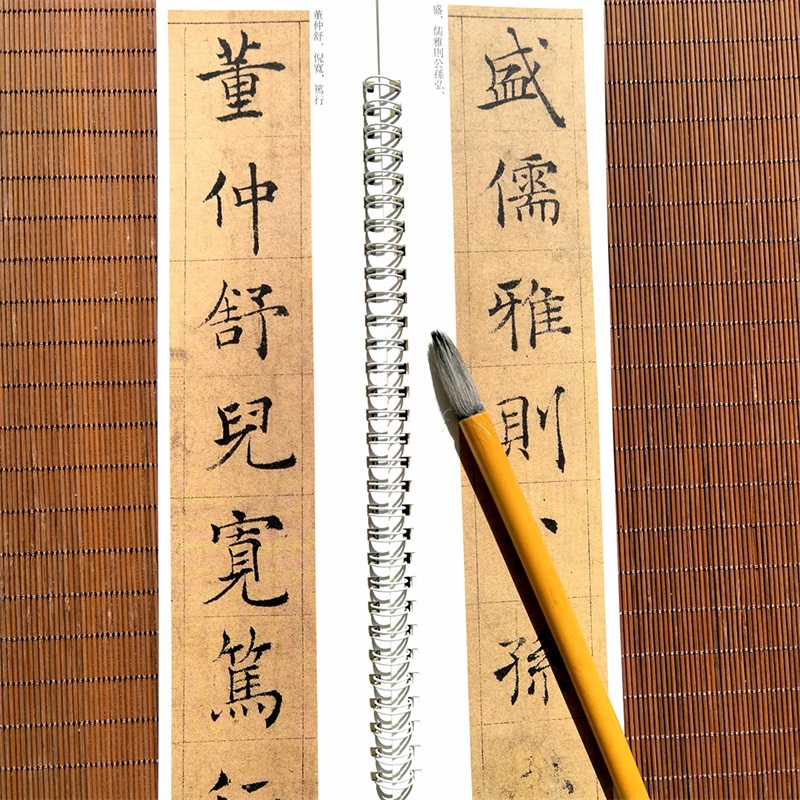 盛儒雅則孫
盛，儒雅則公孫弘、
董仲舒、倪寬，篤行
董仲舒兒寬篤